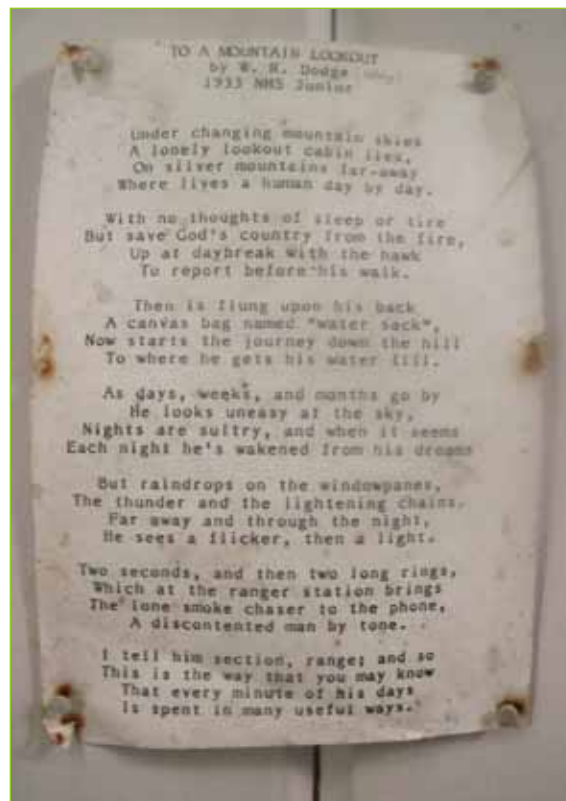 TO A MOUNTAIN LOOKOUT
by W. H. Dodge
1933 NHS Junior
Under changing mountain skies
A lonely lookout cabin lies,
On silver mountains far-away
Where lives a human day by day.
With no thoughts of sleep or tire
But save God's country from the fire,
Up at daybreak with the hawk
To report before his walk.
Then is flung upon his back
A canvas bag named "water sack",
Now starts the journey down the hill
To where he gets his water fill.
As days, weeks, and months go by
He looks uneasy at the sky,
Nights are sultry, and when it seems
Each night he's wakened from his dreams
But raindrops on the windowpanes,
The thunder and the lightening chains.
Far away and through the night,
He sees a flicker, then a light.
Two seconds, and then two long rings,
Which at the ranger station brings
The lone smoke chaser to the phone,
A discontented man by tone.
I tell him section, range; and so
This is the way that you may know
That every minute of his days
Is spent in many useful ways.